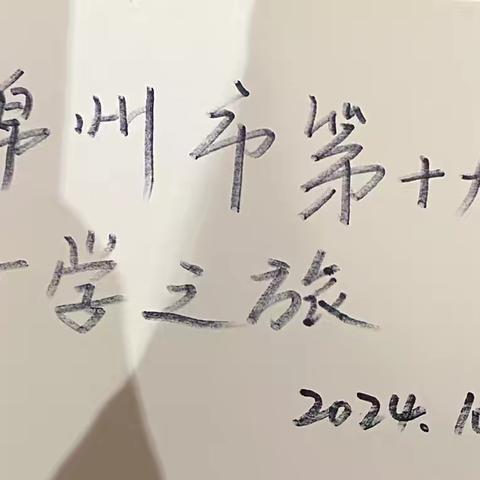 锦州市第十
学之旅
2024.10